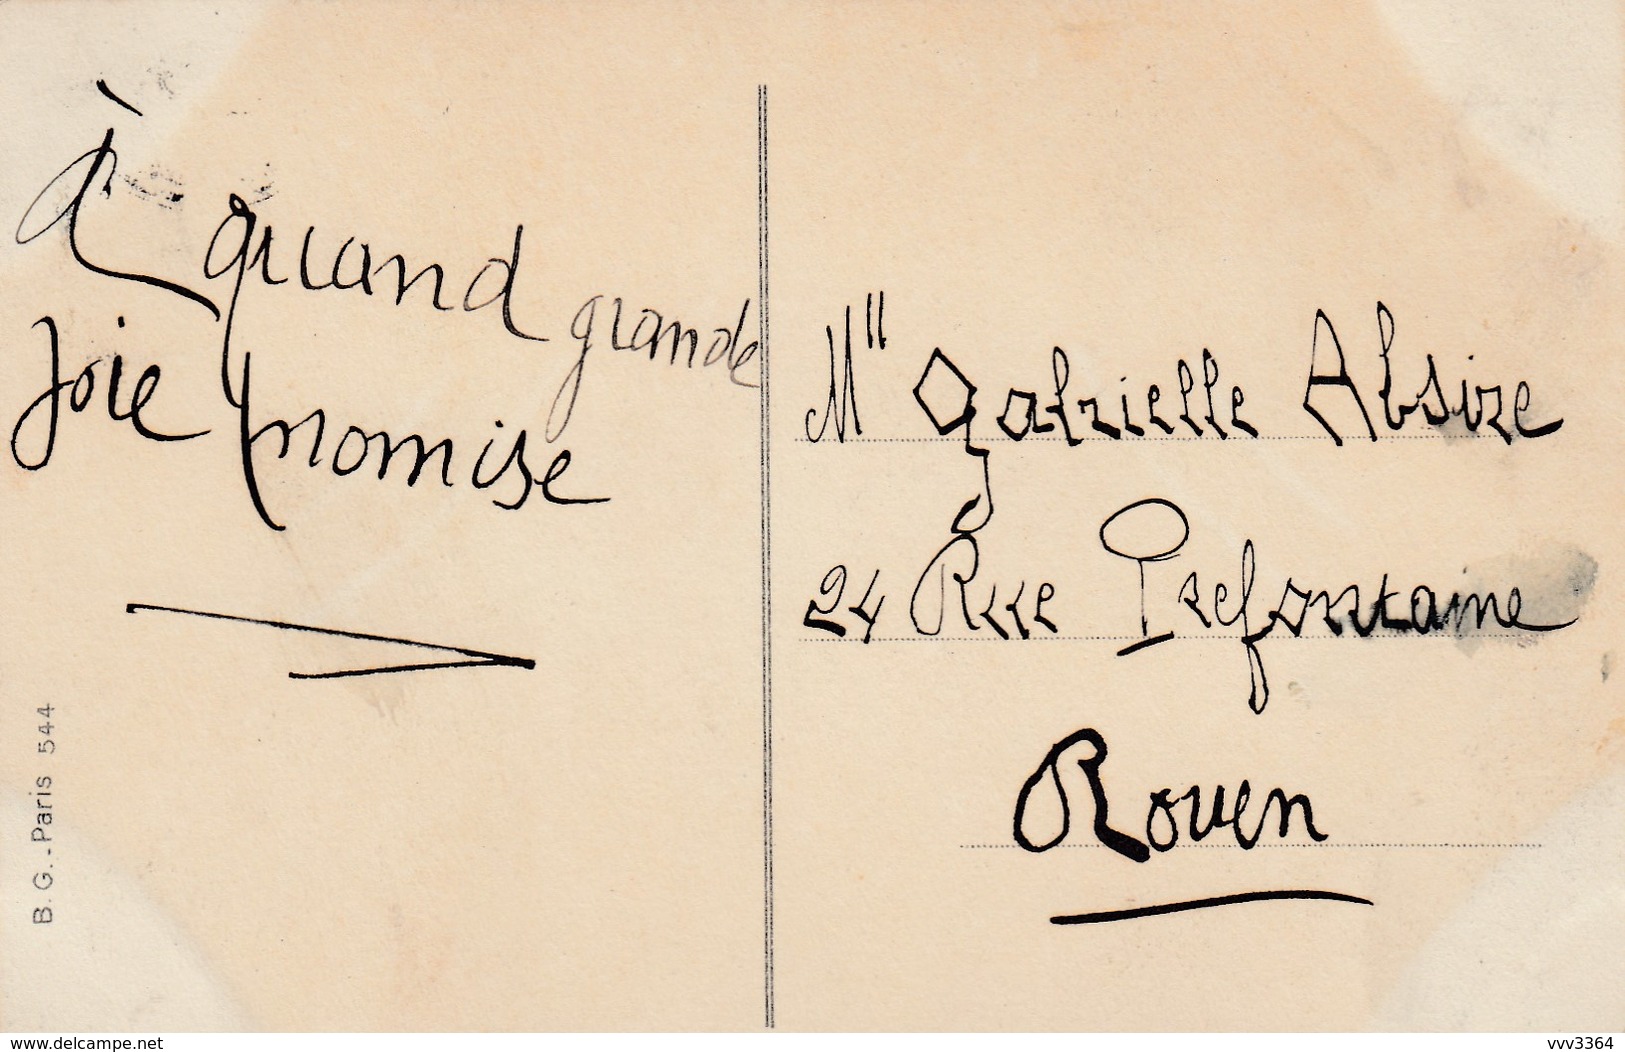 À quand grande
Joie promise
Mll Gabrielle Absire
24 Rue Prefontaine
Rouen
B. G. - Paris 544
www.delcampe.net
vvv3364